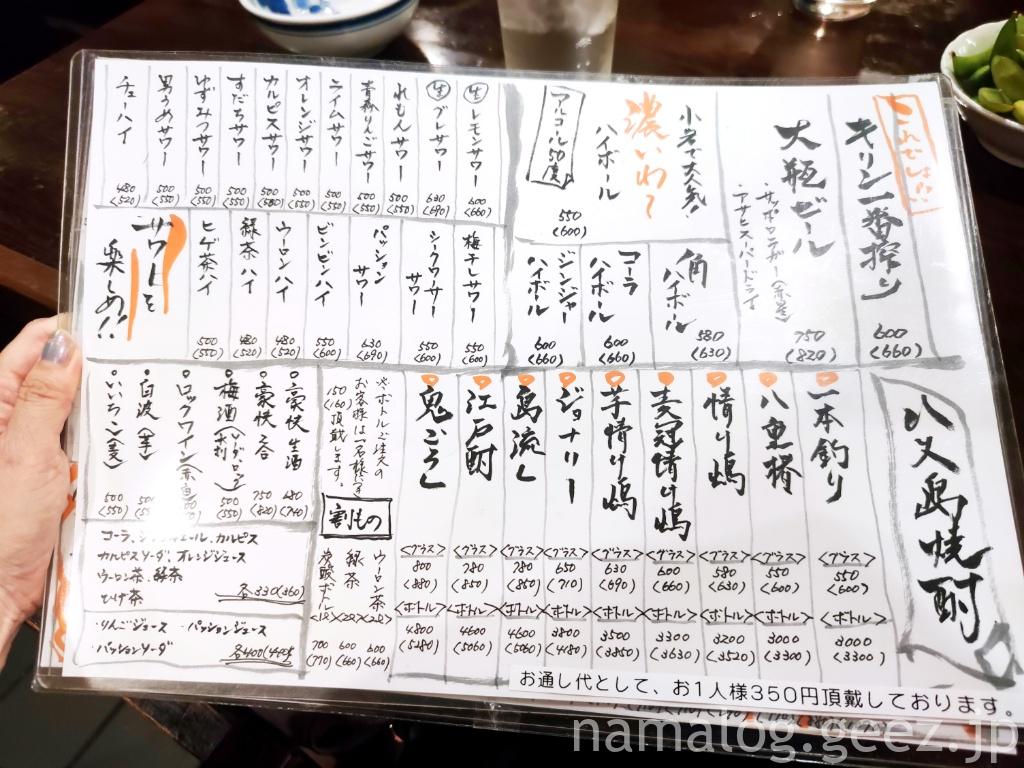 キリン一番搾り
600
(660)
大瓶ビール
・サッポロラガー(赤星)
・アサヒスーパードライ
750
(820)
小岩で大人気!
濃いわ〜
ハイボール
アルコール50度
550
(600)
角
ハイボール
580
(630)
コーラ
ハイボール
600
(660)
ジンジャー
ハイボール
600
(660)
生レモンサワー
600
(660)
生グレサワー
630
(690)
れもんサワー
500
(550)
青りんごサワー
500
(550)
ライムサワー
500
(550)
オレンジサワー
500
(550)
カルピスサワー
500
(580)
すだちサワー
500
(550)
ゆずみつサワー
500
(550)
男うめサワー
500
(550)
チューハイ
480
(520)
梅干しサワー
550
(600)
シークワーサー
サワー
550
(600)
パッション
サワー
630
(690)
ビンビンハイ
550
(600)
ウーロンハイ
480
(520)
緑茶ハイ
480
(520)
ヒゲ茶ハイ
500
(550)
サワーを
楽しめ!!
八丈島焼酎
一本釣り
<グラス>
550
(600)
<ボトル>
3000
(3300)
八重椿
<グラス>
550
(600)
<ボトル>
3000
(3300)
情け嶋
<グラス>
580
(630)
<ボトル>
3200
(3520)
麦冠情け嶋
<グラス>
600
(660)
<ボトル>
3300
(3630)
芋情け嶋
<グラス>
630
(690)
<ボトル>
3500
(3850)
ジョナリー
<グラス>
650
(710)
<ボトル>
3800
(4180)
島流し
<グラス>
780
(850)
<ボトル>
4600
(5060)
江戸酎
<グラス>
780
(850)
<ボトル>
4600
(5060)
鬼ごろし
<グラス>
800
(880)
<ボトル>
4800
(5280)
※ボトルご注文の
お客様は一名様ずつ
150(160)頂戴します。
割りもの
ウーロン茶
<2ℓ>
600
(660)
緑茶
<2ℓ>
600
(660)
炭酸ボトル
<1ℓ>
700
(770)
豪快 生酒
680
(740)
豪快 合
750
(820)
梅酒
500
(550)
ロックワイン(赤・白)
500
(550)
白波(芋)
500
(550)
いいちこ(麦)
500
(550)
コーラ、ジンジャエール、カルピス
カルピスソーダ、オレンジジュース
ウーロン茶、緑茶
ひげ茶
各330(360)
・りんごジュース ・パッションジュース
・パッションソーダ
各400(440)
お通し代として、お1人様350円頂戴しております。
namalog.geez.jp